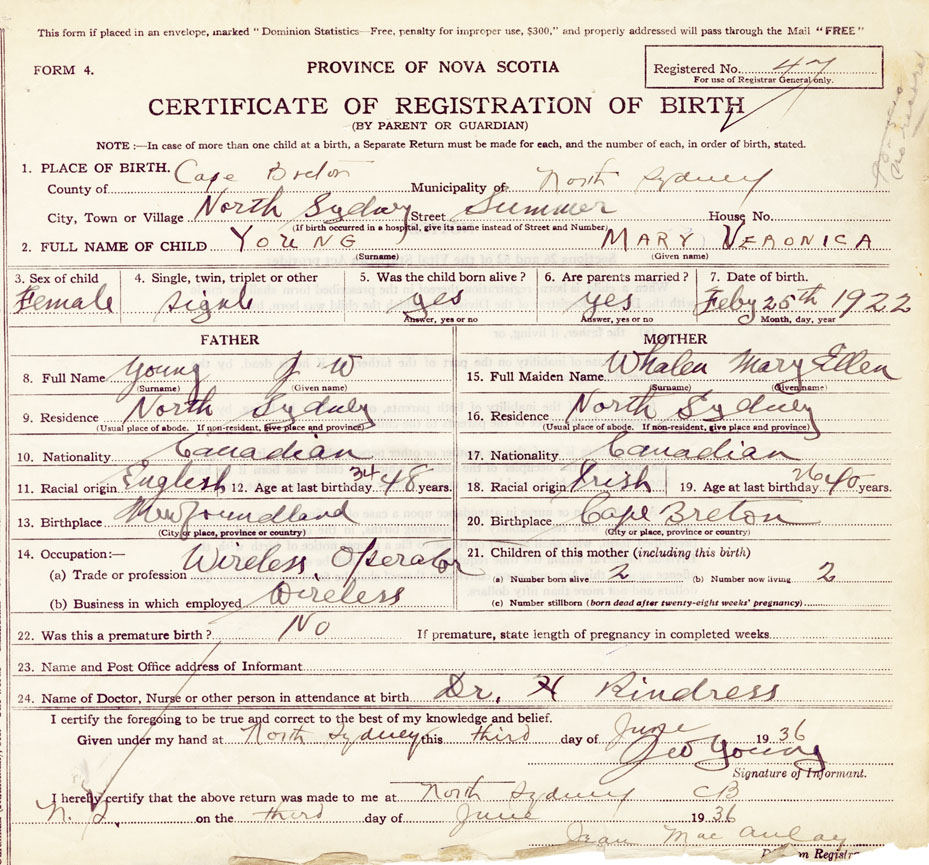 This form if placed in an envelope, marked "Dominion Statistics—Free, penalty for improper use, $300," and properly addressed will pass through the Mail "FREE"
FORM 4.
PROVINCE OF NOVA SCOTIA
Registered No. 47
For use of Registrar General only.
CERTIFICATE OF REGISTRATION OF BIRTH
(BY PARENT OR GUARDIAN)
NOTE :—In case of more than one child at a birth, a Separate Return must be made for each, and the number of each, in order of birth, stated.
1. PLACE OF BIRTH.
County of Cape Breton Municipality of North Sydney
City, Town or Village North Sydney Street Summer House No.
(If birth occurred in a hospital, give its name instead of Street and Number)
2. FULL NAME OF CHILD YOUNG MARY VERONICA
(Surname) (Given name)
3. Sex of child 4. Single, twin, triplet or other 5. Was the child born alive ? 6. Are parents married ? 7. Date of birth.
Female signle yes yes Feby 25th 1922
Answer, yes or no Answer, yes or no Month, day, year
FATHER MOTHER
8. Full Name Young J W 15. Full Maiden Name Whalen Mary Ellen
(Surname) (Given name) (Surname) (Given name)
9. Residence North Sydney 16. Residence North Sydney
(Usual place of abode. If non-resident, give place and province) (Usual place of abode. If non-resident, give place and province)
10. Nationality Canadian 17. Nationality Canadian
11. Racial origin English 12. Age at last birthday 34 48 years. 18. Racial origin Irish 19. Age at last birthday 26 40 years.
13. Birthplace Newfoundland 20. Birthplace Cape Breton
(City or place, province or country) (City or place, province or country)
14. Occupation:— 21. Children of this mother (including this birth)
(a) Trade or profession Wireless Operator (a) Number born alive 2 (b) Number now living 2
(b) Business in which employed Wireless (c) Number stillborn (born dead after twenty-eight weeks' pregnancy)
22. Was this a premature birth ? No If premature, state length of pregnancy in completed weeks
23. Name and Post Office address of Informant
24. Name of Doctor, Nurse or other person in attendance at birth Dr. H Rindress
I certify the foregoing to be true and correct to the best of my knowledge and belief.
Given under my hand at North Sydney this third day of June 1936
Geo Young
Signature of Informant.
I hereby certify that the above return was made to me at North Sydney CB
N. S. on the third day of June 1936
Jean MacAulay